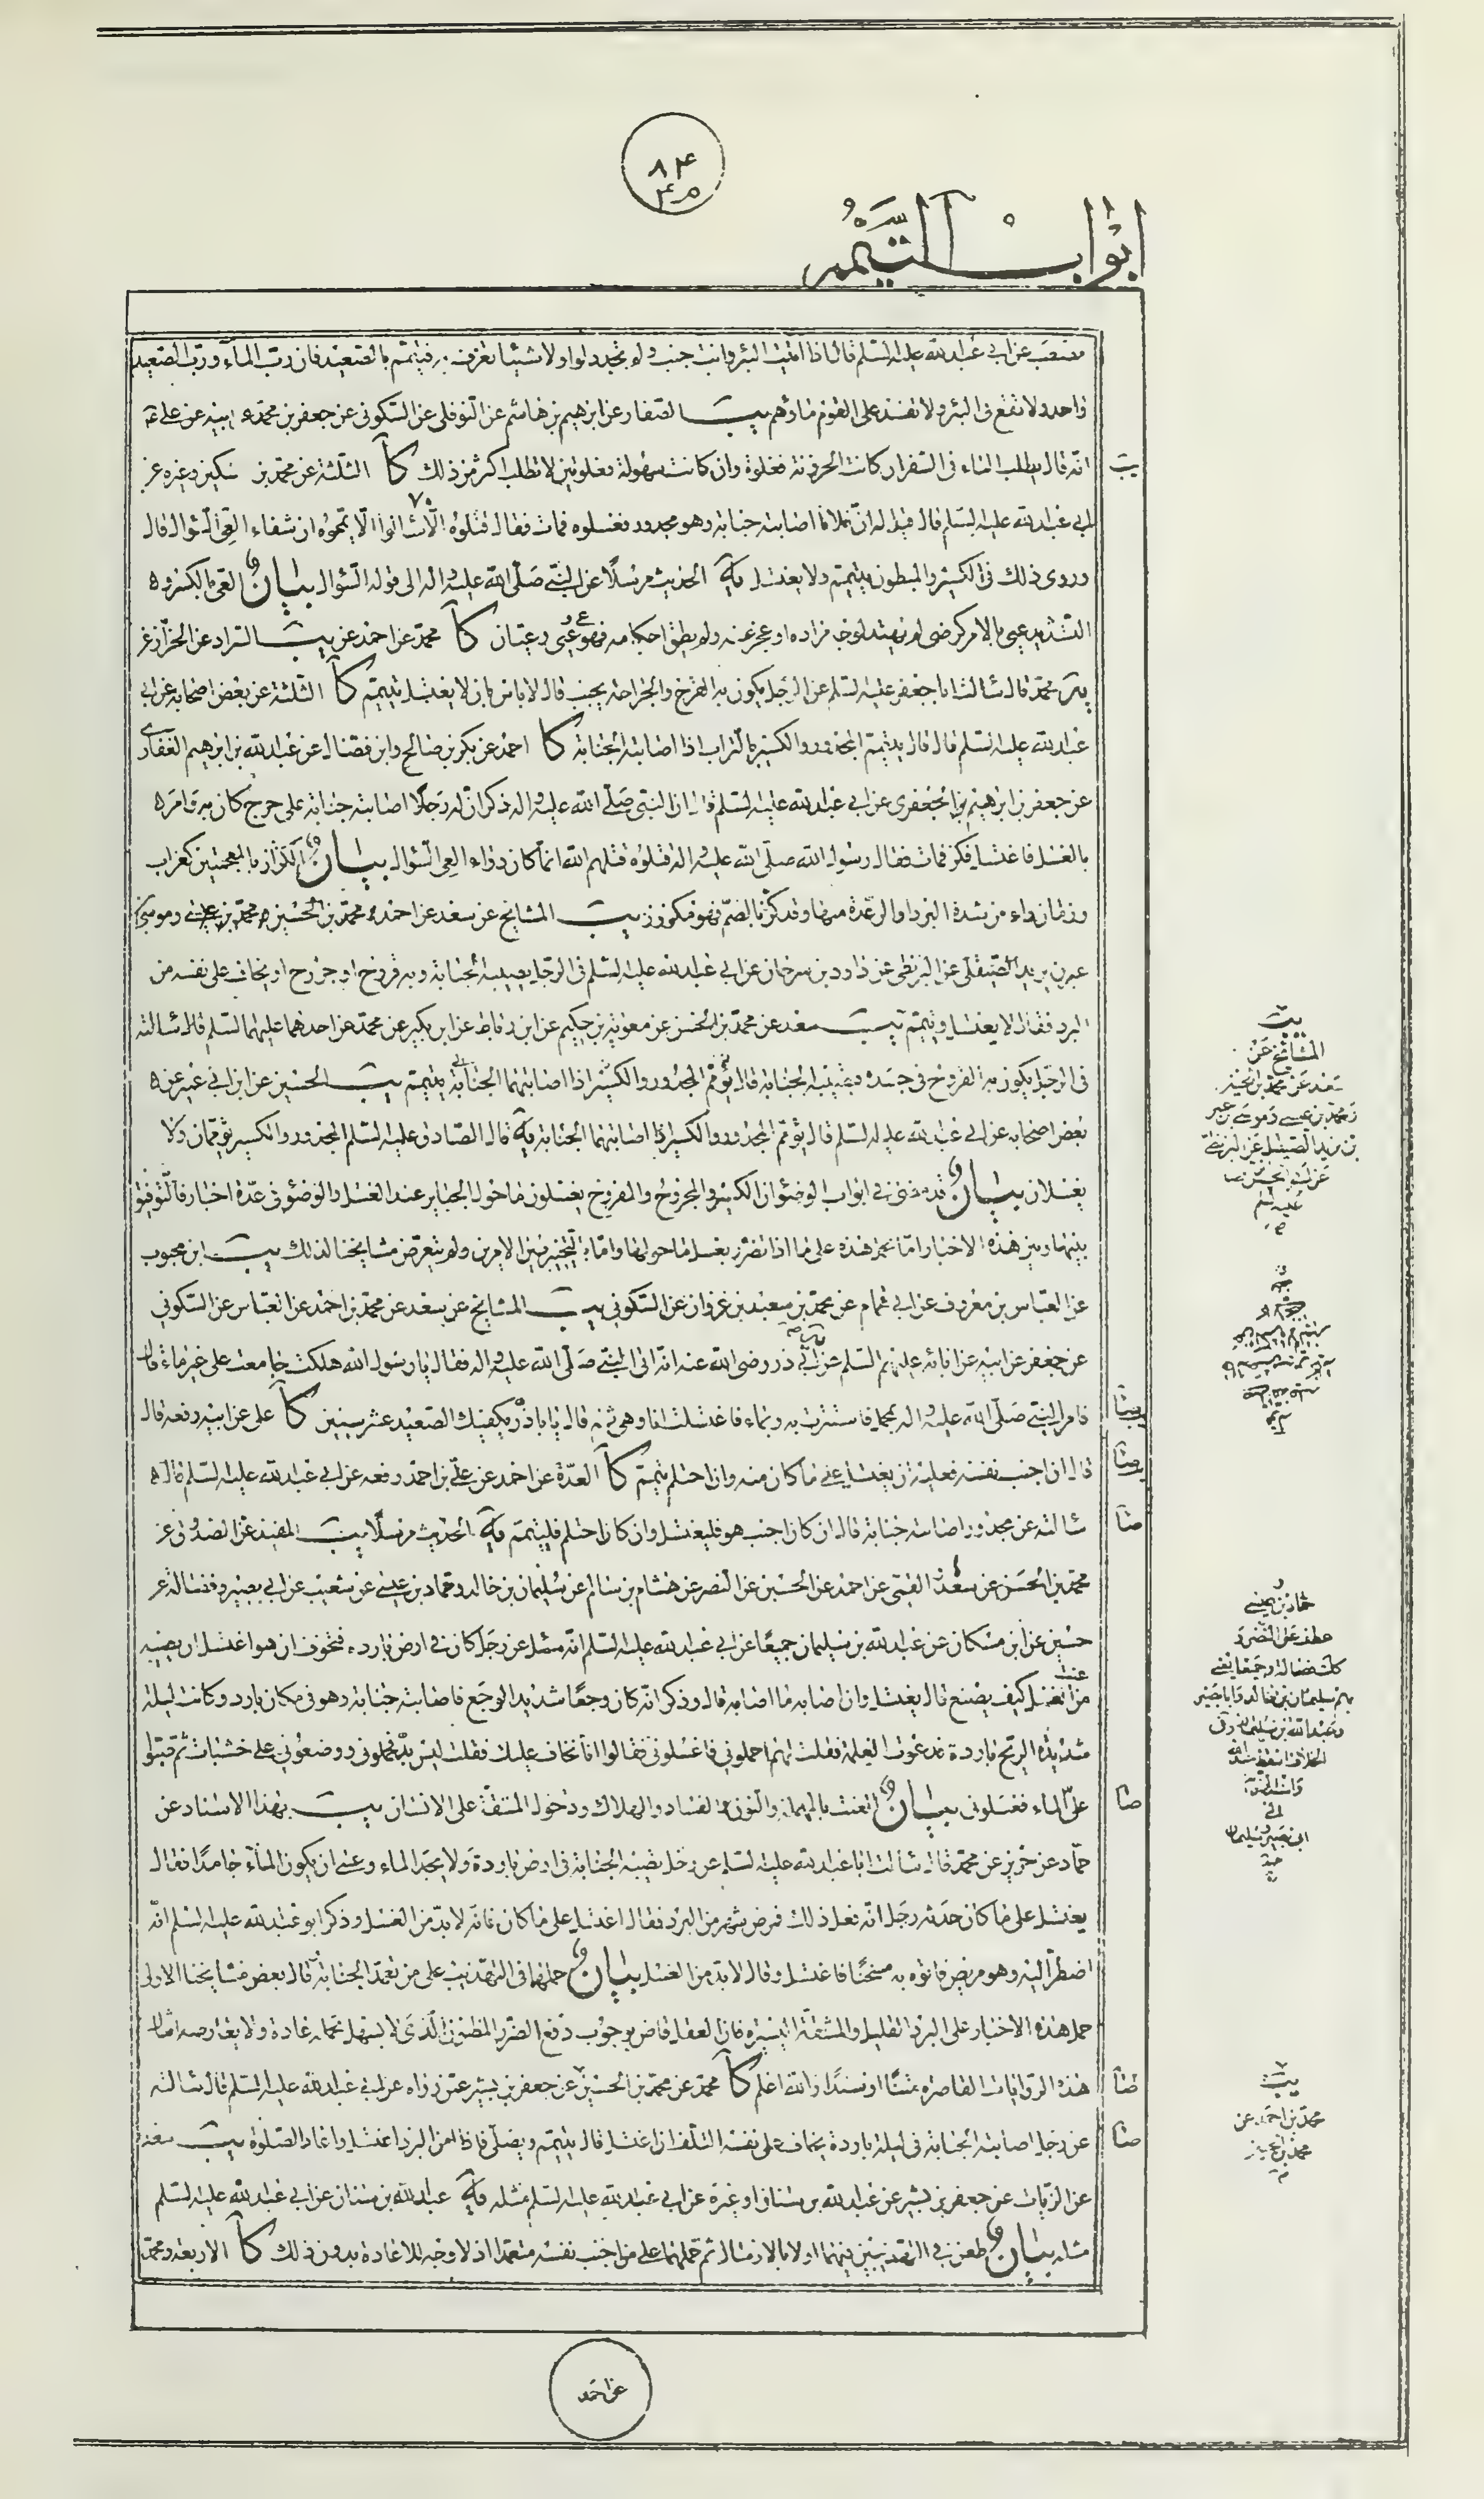 ٨٤
ابواب التيمم
عن ابي عبد الله عليه السلم قال اذا اتيت البئر وانت جنب ولم تجد دلوا ولا شيئا تغرف به فتيمم بالصعيد فان رب الماء ورب الصعيد
واحد ولا تقع في البئر ولا تفسد على القوم ماءهم يب الصفار عن ابرهيم بن هاشم عن النوفلي عن السكوني عن جعفر بن محمد عن ابيه عن علي
انه قال يطلب الماء في السفر ان كانت الحزونة فغلوة وان كانت سهولة فغلوتين لا تطلب اكثر من ذلك كا الثلثة عن محمد بن سكين وغيره عن
ابي عبد الله عليه السلم قال قيل له ان فلانا اصابته جنابة وهو مجدور فغسلوه فمات فقال قتلوه الا سالوا الا يمموه ان شفاء العي السؤال قال
وروى ذلك في الكسير والمبطون يتيمم ولا يغتسل يه الحديث مرسلا عن النبي صلى الله عليه واله الى قوله السؤال بيان العي بالكسر و
التشديد عيي بالامر كرضي لم يهتد لوجه مراده او عجز عنه ولم يطق احكامه فهو عيي وعيان كا محمد عن احمد عن يب السراد عن الخزاز عن
محمد قال سالت ابا جعفر عليه السلم عن الرجل يكون به القرح والجراحة يجنب قال لا باس بان لا يغتسل يتيمم كا الثلثة عن بعض اصحابه عن ابي
عبد الله عليه السلم قال قال يتيمم المجدور والكسير بالتراب اذا اصابته الجنابة كا احمد عن بكر بن صالح وابن فضال عن عبد الله بن ابرهيم الغفاري
عن جعفر بن ابرهيم الجعفري عن ابي عبد الله عليه السلم قال ان النبي صلى الله عليه واله ذكر ان له رجلا اصابته جنابة على جرح كان به فامره
بالغسل فاغتسل فكز فمات فقال رسول الله صلى الله عليه واله قتلوه قتلهم الله انما كان دواء العي السؤال بيان الكزاز بالمعجمتين كغراب
ورمان داء من شدة البرد او الرعدة منها وقد كز بالضم فهو مكزوز يب المشايخ عن سعد عن احمد ومحمد بن الحسين ومحمد بن عيسى وموسى بن
عمر بن يزيد الصيقل عن البزنطي عن داود بن سرحان عن ابي عبد الله عليه السلم في الرجل يصيبه الجنابة وبه قروح او جروح او يخاف على نفسه من
البرد فقال لا يغتسل ويتيمم يب سعد عن محمد بن الحسن عن معوية بن حكيم عن ابن رباط عن ابن بكير عن محمد عن احدهما عليهما السلم قال سالته
في الرجل يكون به القروح في جسده فيصيبه الجنابة قال يتيمم يب الحسين عن ابن ابي عمير عن
بعض اصحابه عن ابي عبد الله عليه السلم قال يؤمم المجدور والكسير اذا اصابتهما الجنابة يه قال الصادق عليه السلم المجدور والكسير يؤممان ولا
يغسلان بيان قد مضى في ابواب الوضوء ان الكسير والمجروح والمقروح يغسلون ما حول الجباير عند الغسل والوضوء في عدة اخبار فالتوفيق
بينها وبين هذه الاخبار اما بحمل هذه على ما اذا تضرر بغسل ما حولها واما بالتخيير بين الامرين ولم يتعرض مشايخنا لذلك يب ابن محبوب
عن العباس بن معروف عن ابي همام عن محمد بن سعيد بن غزوان عن السكوني يب المشايخ عن سعد عن محمد بن احمد عن العباس عن السكوني
عن جعفر عن ابيه عن ابائه عليهم السلم عن ابي ذر رضي الله عنه انه اتى النبي صلى الله عليه واله فقال يا رسول الله هلكت جامعت على غير ماء قال
فامر النبي صلى الله عليه واله بمحمل فاستترت به وبماء فاغتسلت انا وهي ثم قال يا با ذر يكفيك الصعيد عشر سنين كا علي عن ابيه رفعه قال
قال ان اجنب نفسه فعليه ان يغتسل على ما كان منه وان احتلم تيمم كا العدة عن احمد عن علي بن احمد رفعه عن ابي عبد الله عليه السلم قال
سالته عن مجدور اصابته جنابة قال ان كان اجنب هو فليغتسل وان كان احتلم فليتيمم يه الحديث مرسلا يب المفيد عن الصدوق عن
محمد بن الحسن عن سعد عن احمد عن الحسين عن النضر عن هشام بن سالم عن سليمان بن خالد وحماد بن عيسى عن شعيب عن ابي بصير وفضالة عن
حسين عن ابن مسكان عن عبد الله بن سليمان جميعا عن ابي عبد الله عليه السلم انه سئل عن رجل كان في ارض باردة فتخوف ان هو اغتسل ان يصيبه
عنت من الغسل كيف يصنع قال يغتسل وان اصابه ما اصابه قال وذكر انه كان وجعا شديد الوجع فاصابته جنابة وهو في مكان بارد وكانت ليلة
شديدة الريح باردة فدعوت الغلمة فقلت لهم احملوني فاغسلوني فقالوا انا نخاف عليك فقلت ليس بد فحملوني ووضعوني على خشبات ثم صبوا
علي الماء فغسلوني بيان العنت بالمهملة والنون الفساد والهلاك ودخول المشقة على الانسان يب بهذا الاسناد عن
حماد عن حريز عن محمد قال سالت ابا عبد الله عليه السلم عن رجل تصيبه الجنابة في ارض باردة ولا يجد الماء وعسى ان يكون الماء جامدا فقال
يغتسل على ما كان حدثه رجل انه فعل ذلك فمرض شهرا من البرد فقال اغتسل على ما كان فانه لا بد من الغسل وذكر ابو عبد الله عليه السلم انه
اضطر اليه وهو مريض فاتوه به مسخنا فاغتسل وقال لا بد من الغسل بيان حملهما في التهذيب على من تعمد الجنابة قال بعض مشايخنا الاولى
حمل هذه الاخبار على البرد القليل والمشقة اليسيرة فان العقل قاض بوجوب دفع الضرر المظنون الذي لا يسهل تحمله عادة ولا يعارضه امثال
هذه الروايات القاصرة متنا او سندا والله اعلم كا محمد عن محمد بن الحسين عن جعفر بن بشير عمن رواه عن ابي عبد الله عليه السلم قال سالته
عن رجل اصابته الجنابة في ليلة باردة يخاف على نفسه التلف ان اغتسل قال يتيمم ويصلي فاذا امن البرد اغتسل واعاد الصلوة يب سعد
عن الزيات عن جعفر بن بشير عن عبد الله بن سنان او غيره عن ابي عبد الله عليه السلم مثله يه عبد الله بن سنان عن ابي عبد الله عليه السلم
مثله بيان طعن في التهذيبين فيهما اولا بالارسال ثم حملهما على من اجنب نفسه متعمدا اذ لا وجه للاعادة بدون ذلك كا الاربعة ومحمد
يب
المشايخ عن
سعد عن محمد بن الحسين
ومحمد بن عيسى وموسى بن عمر
بن يزيد الصيقل عن البزنطي
عليه السلم
حماد بن عيسى
عطف على النضر و
كذا فضالة وجميعا يعني
بهم سليمان بن خالد وابا بصير
وعبد الله بن سليمان
ابي بصير وسليمان
يب
محمد بن احمد عن
عن احمد